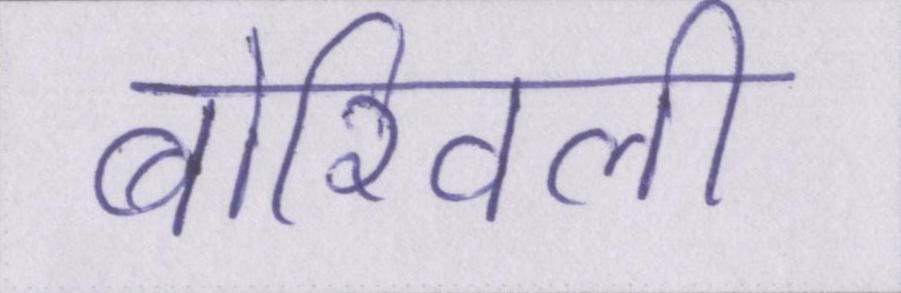 बोरिवली